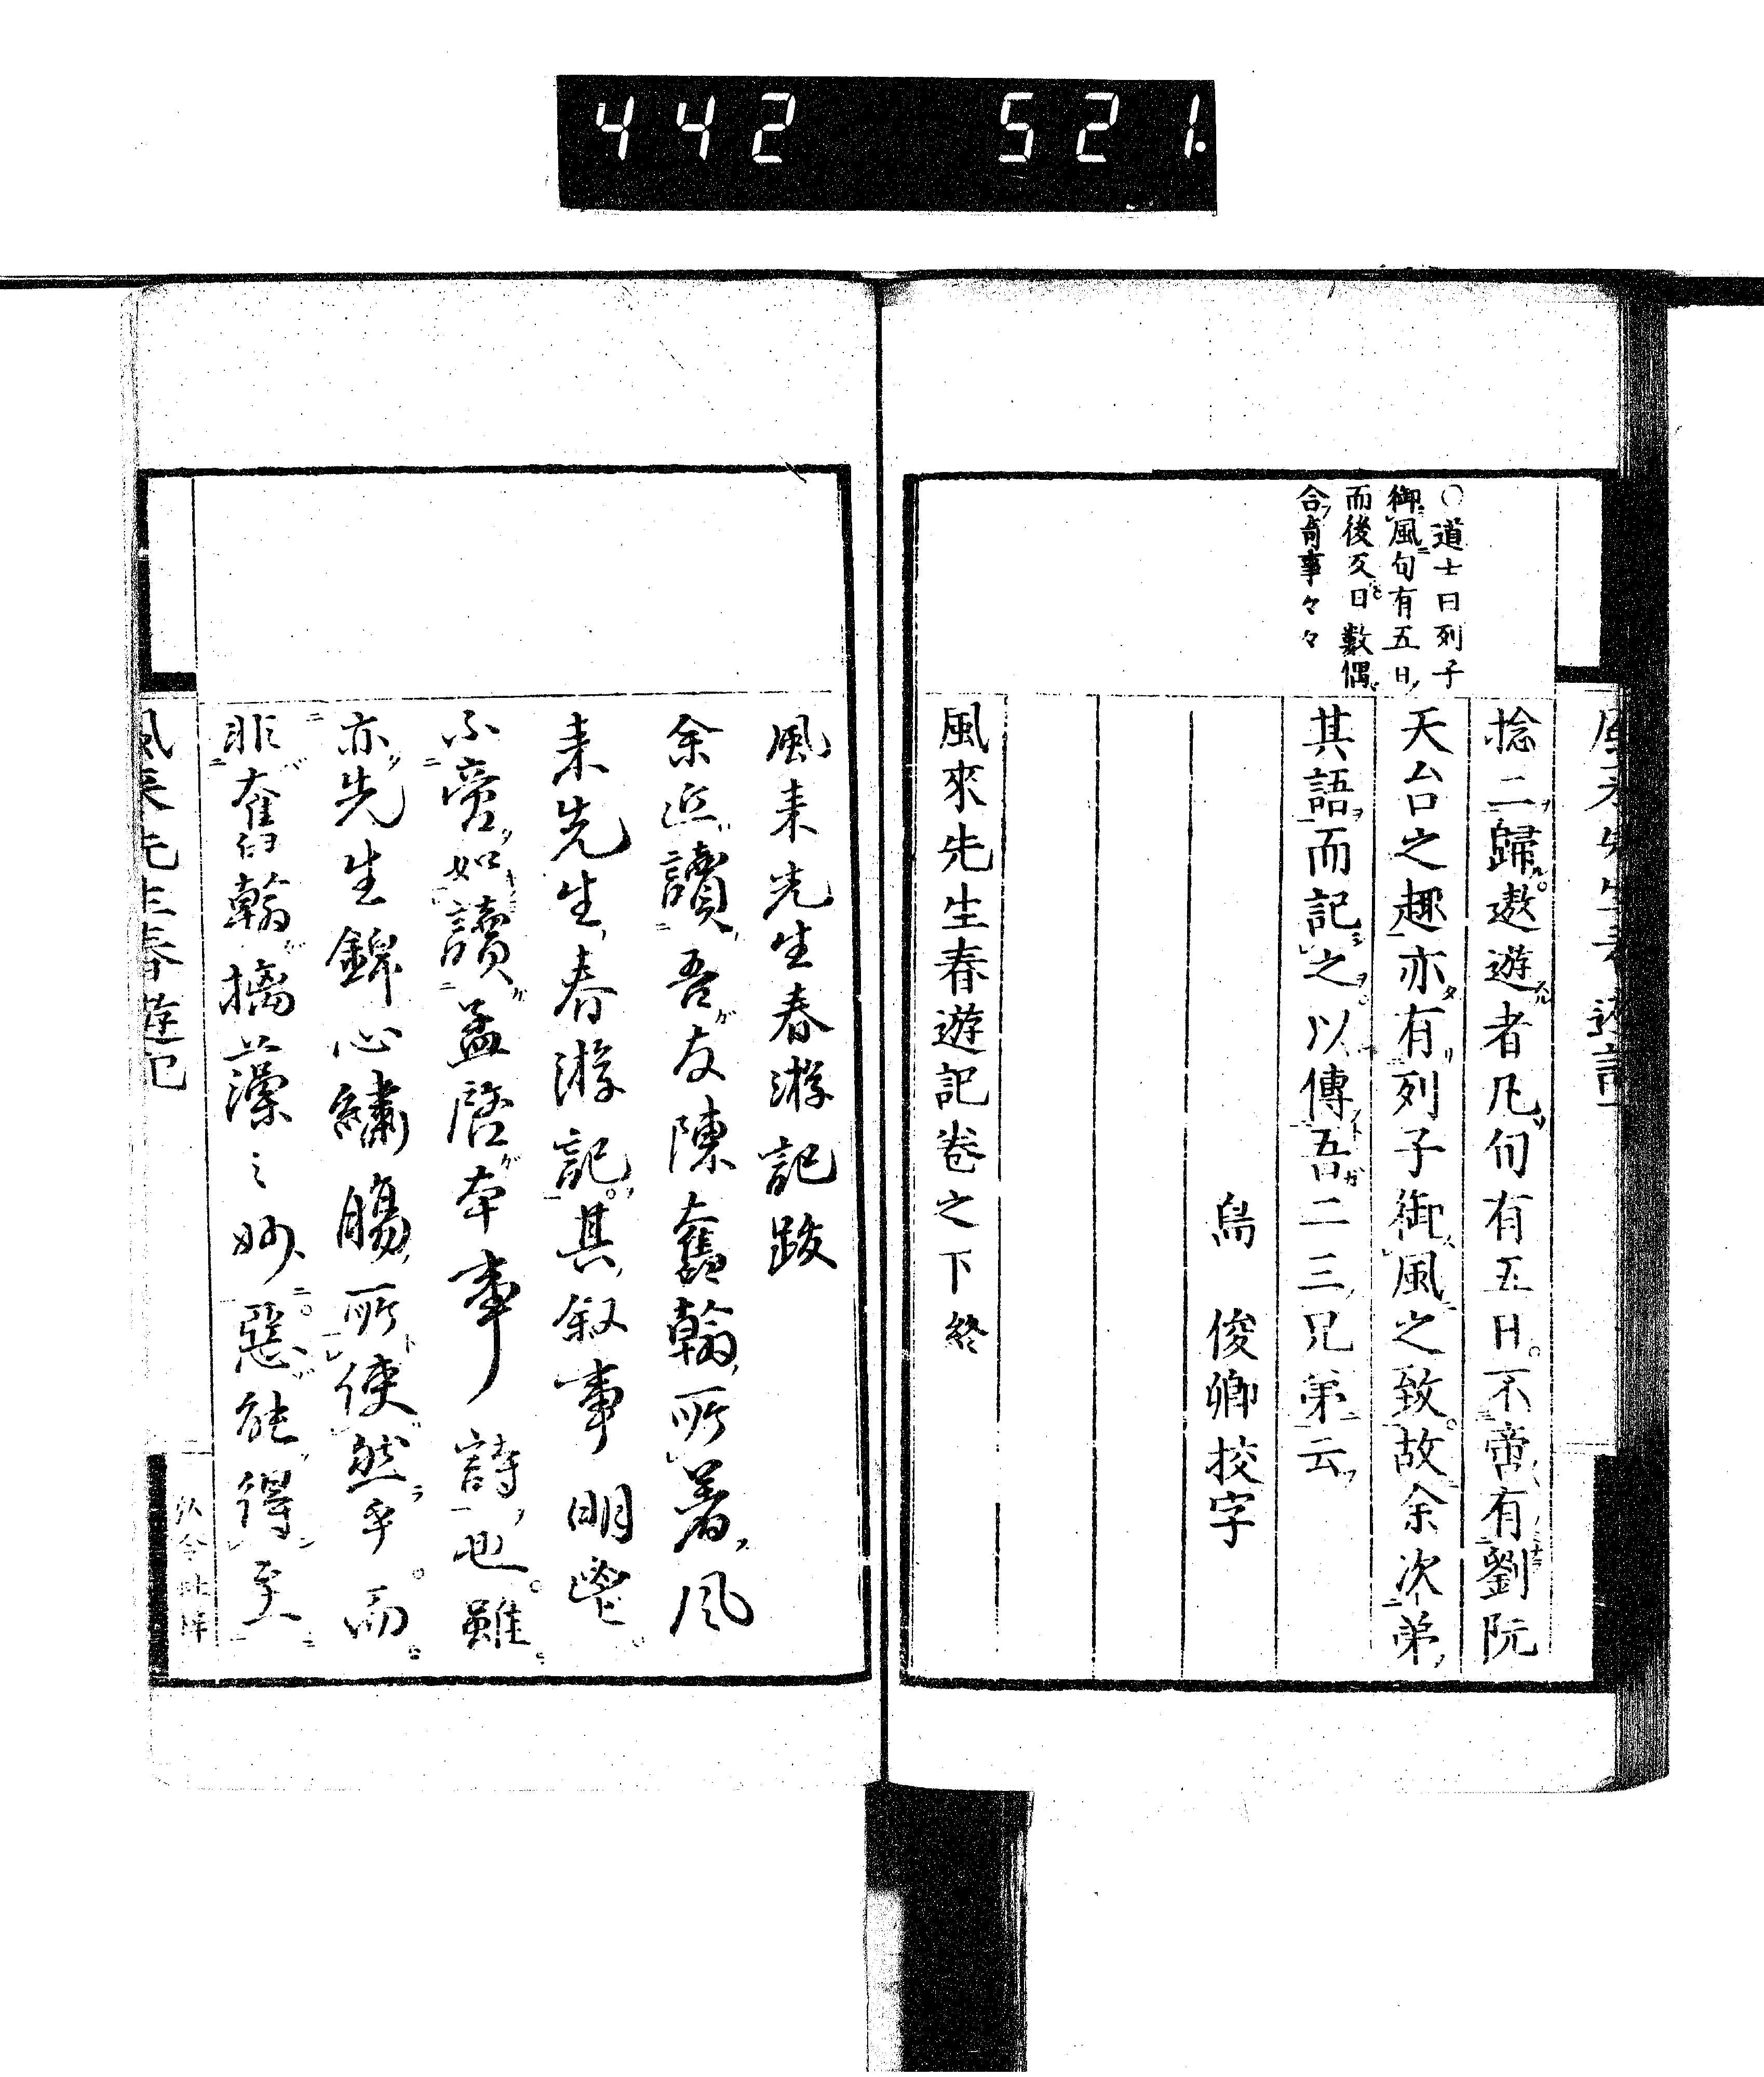 442 521.
〇道士曰列子
御風旬有五日
而後反日數偶
合奇事々々
捻二歸遨遊者凡旬有五日不啻有劉阮
天台之趣亦有列子御風之致故余次第
其語而記之以傳吾二三兄弟云
俊卿挍字
風來先生春遊記卷之下終
風来先生春游記跋
余近讀吾友陳奮翰所著風
来先生春游記其叙事明鬯
不啻如讀孟啓本事詩也雖
亦先生錦心繡腸所使然乎而
非奮翰摛藻之妙惡能得至
風来先生春遊記